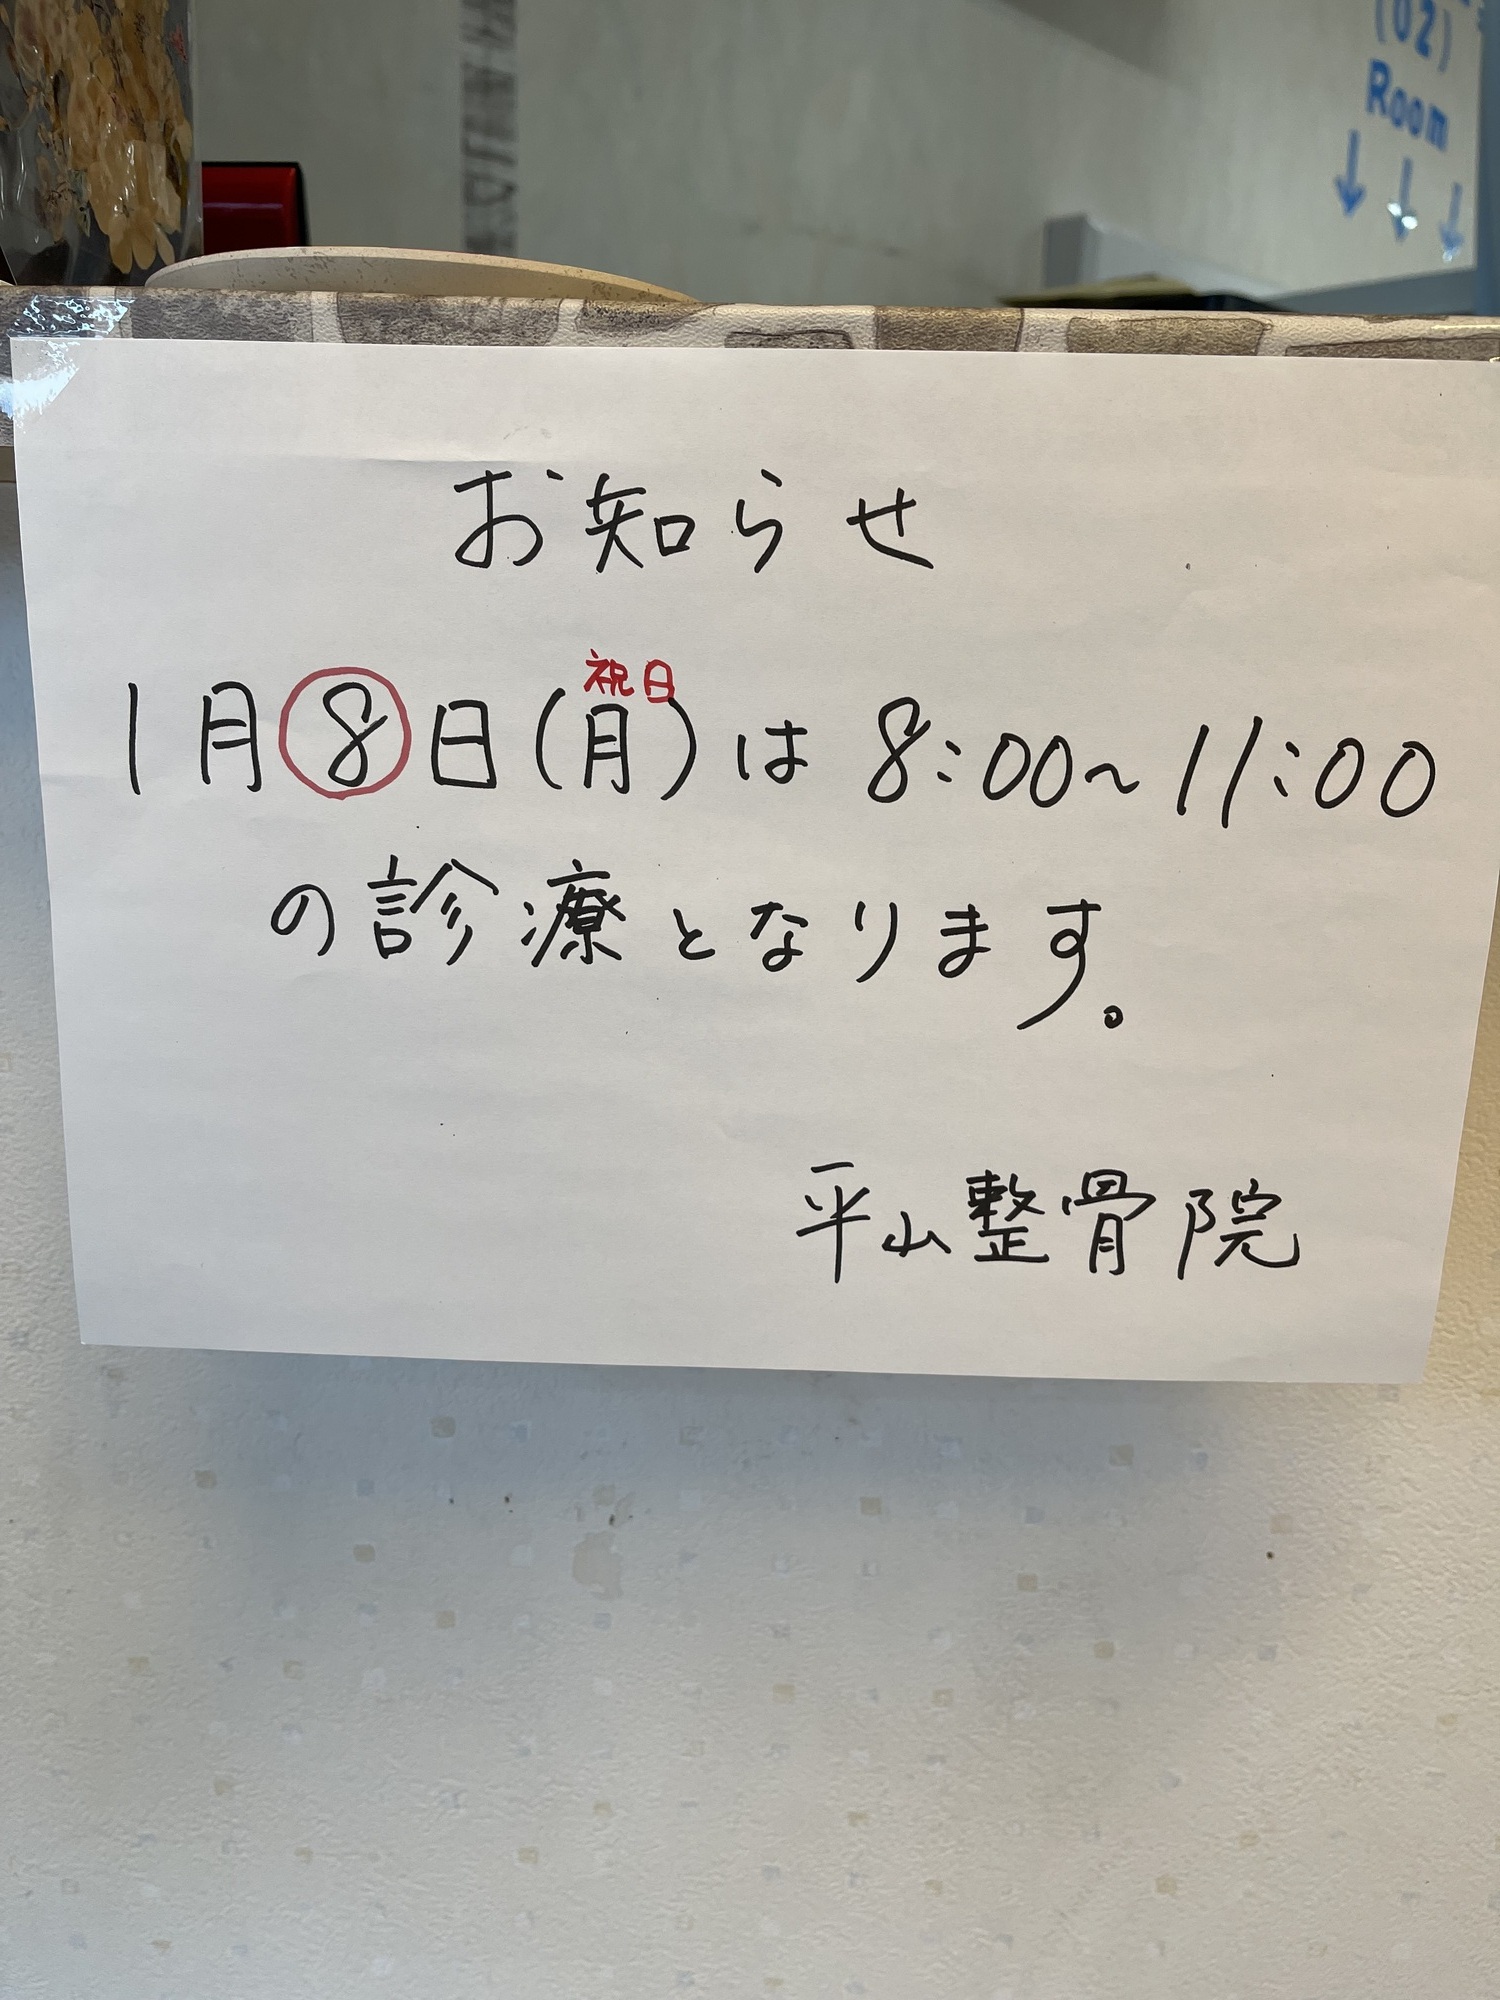 (02)
Room
↓ ↓ ↓
お知らせ
祝日
1月8日(月)は 8:00~11:00
の診療となります。
平山整骨院